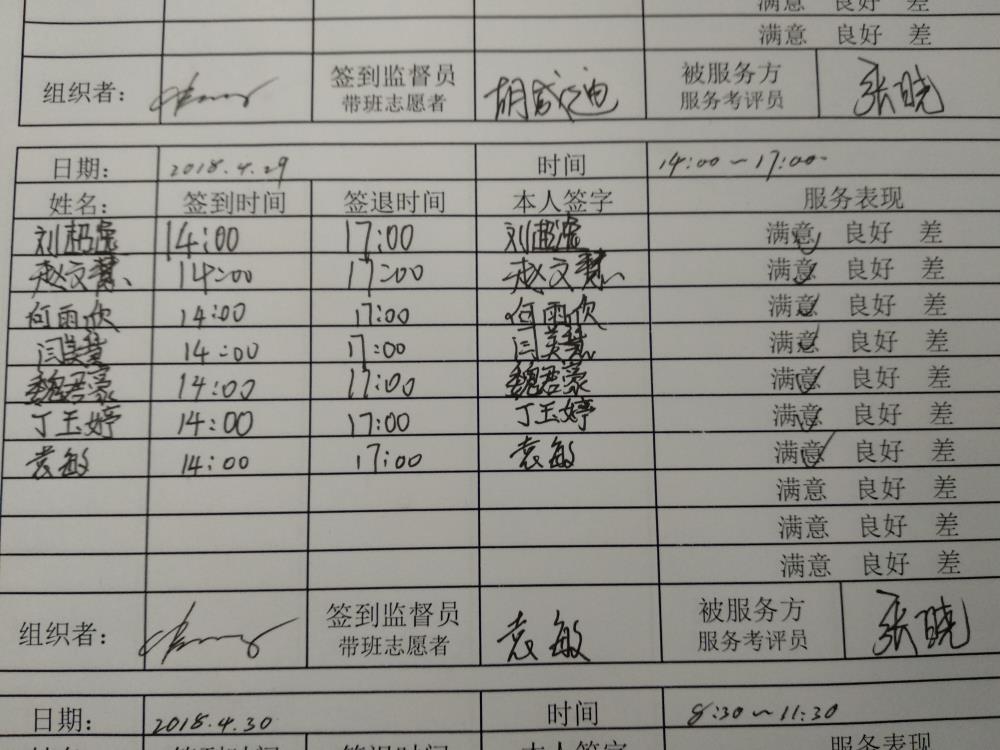 满意 良好 差
满意 良好 差
组织者： 签到监督员 带班志愿者 被服务方 服务考评员 张晓
日期： 2018.4.29 时间 14:00~17:00
姓名： 签到时间 签退时间 本人签字 服务表现
14:00 17:00 满意 良好 差
赵文慧 14:00 17:00 赵文慧 满意 良好 差
何雨欣 14:00 17:00 何雨欣 满意 良好 差
闫美慧 14:00 17:00 闫美慧 满意 良好 差
魏君豪 14:00 17:00 魏君豪 满意 良好 差
丁玉婷 14:00 17:00 丁玉婷 满意 良好 差
袁敏 14:00 17:00 袁敏 满意 良好 差
满意 良好 差
满意 良好 差
满意 良好 差
组织者： 签到监督员 带班志愿者 袁敏 被服务方 服务考评员 张晓
日期： 2018.4.30 时间 8:30~11:30
签到时间 签退时间 本人签字 服务表现